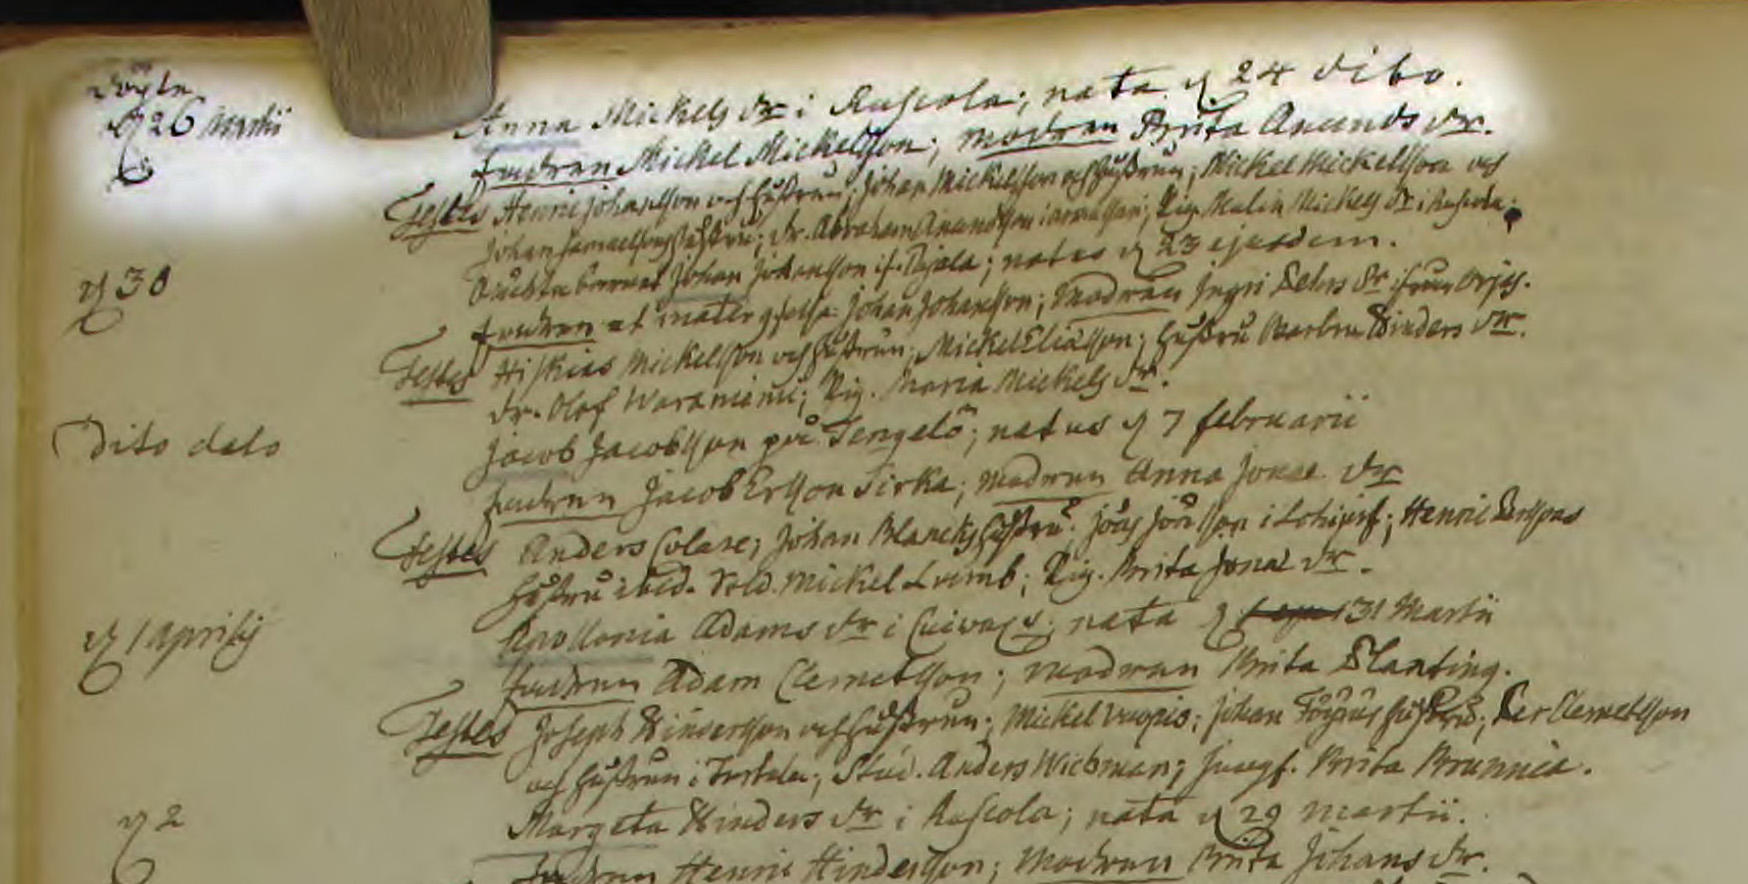 d 26 Martii Anna Mickels dr i Ruskola; nata d 24 dito.
fadren Mickel Mickelsson; modren Brita Anunds dr.
Testes Henric Johansson och hustrun; Johan Mickelsson och hustrun; Mickel Mickelsson och
Johan Samuelssons hustru; dr. Abraham Anundsson i; Pig. Malin Mickels dr i Ruskola;
d 30 Johan Johansson i; natus d 23 ejusdem.
fadren et mater Johan Johansson; modren Ingri Pehrs dr ifrån
Testes Hiskias Mickelsson och hustrun; Mickel Eliasson; hustru Hinders dr.
dr. Olof; Pig. Maria Mickels dr.
Dito dato Jacob Jacobsson på Tengelö; natus d 7 februarii
fadren Jacob Ersson Sirka; modren Anna Jonae dr
Testes Anders Colare; Johan Blancks hustru; Jöns Jönsson i; Henric
hustru ibid. Sold. Mickel Lamb; Pig. Brita Jonae dr.
d 1 Aprilis Apollonia Adams dr i; nata d 31 Martii
fadren Adam Clemetsson; modren Brita Planting.
Testes Joseph Hindersson och hustrun; Mickel; Johan hustru; Per Clemetsson
och hustrun i; Stud. Anders Wichman; jungf. Brita Brunnia.
d 2 Margeta Hinders dr i Ruskola; nata d 29 Martii.
fadren Henric Hindersson; modren Brita Johans dr.